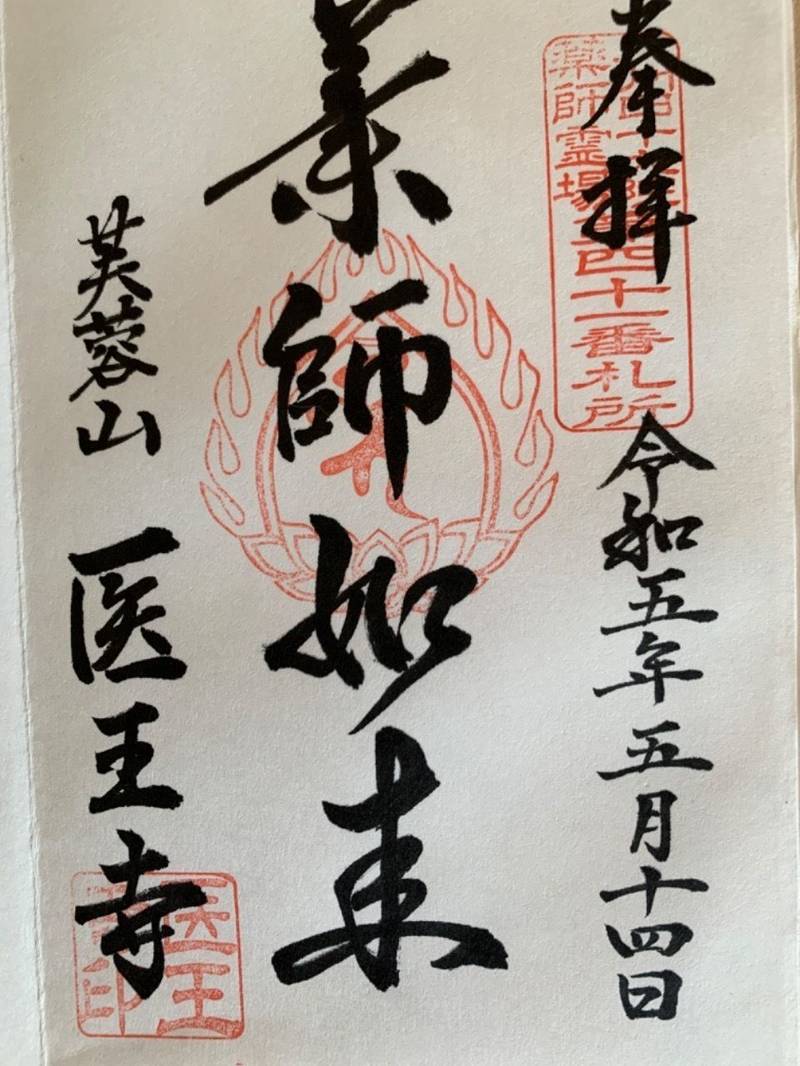 奉拝
令和五年五月十四日
薬師霊場
四十一番札所
薬師如来
芙蓉山 医王寺
医王
印